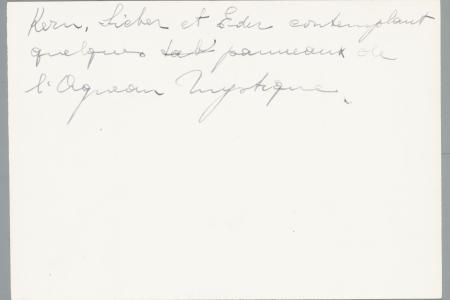 Kern, Sieber et Eder contemplant
quelques tab panneaux de
l'Agneau Mystique.